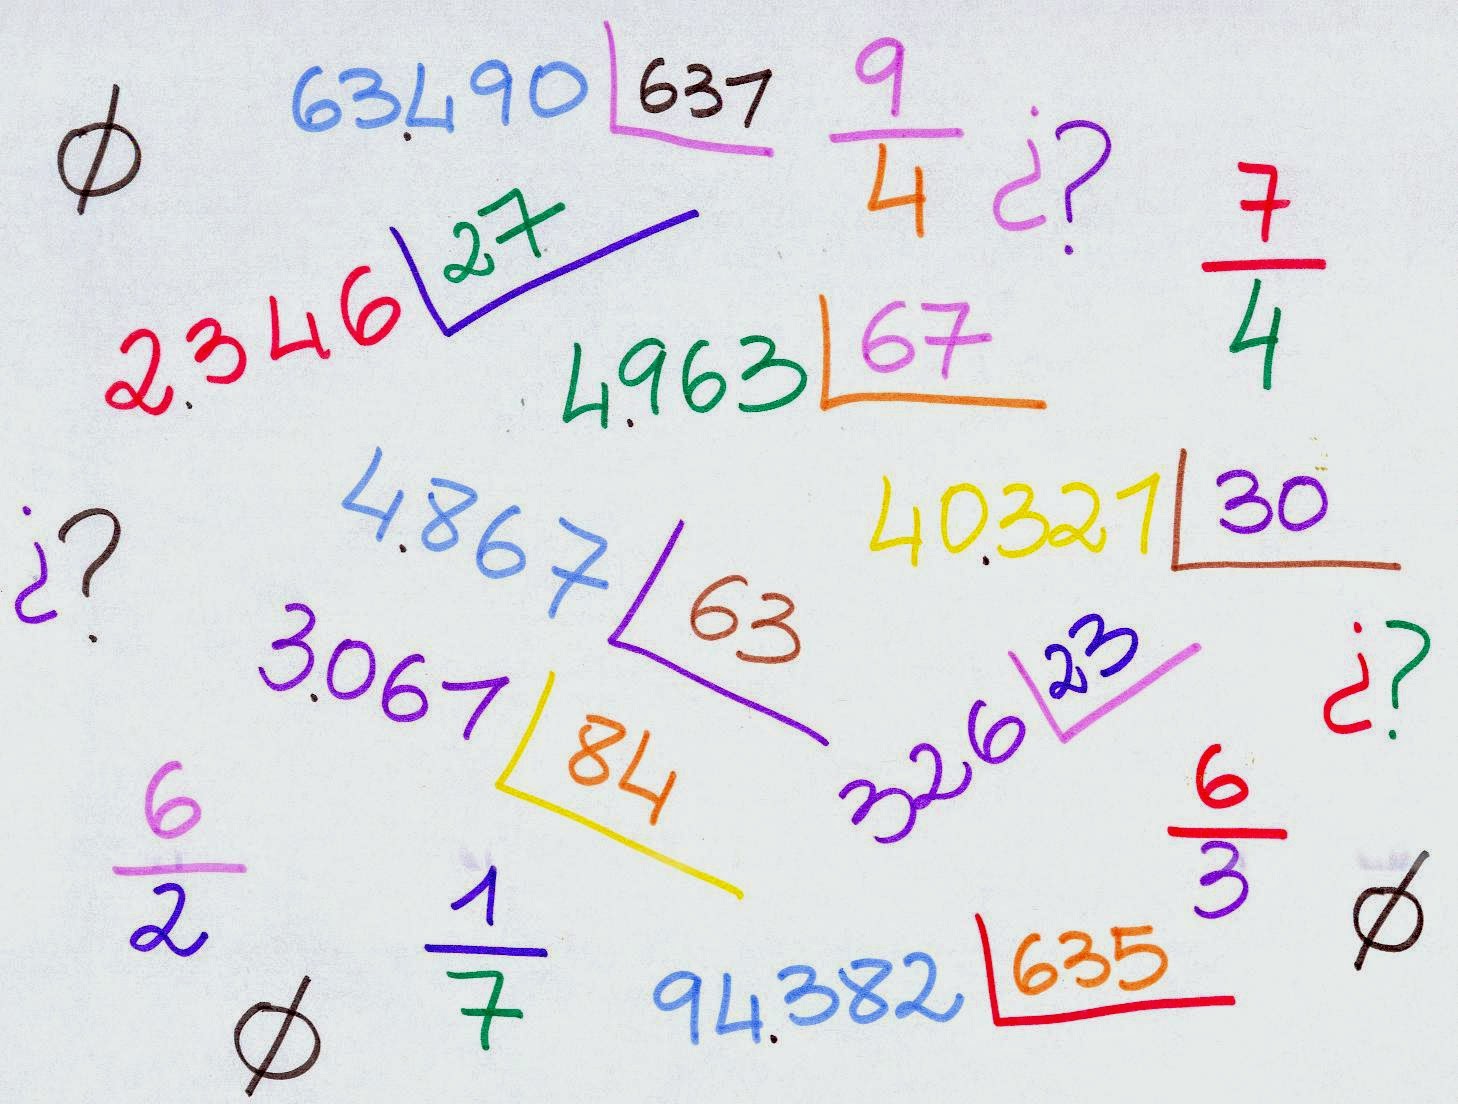 Ø
63.490 631
9/4
¿?
7/4
2.346 27
4.963 67
4.867 63
40.321 30
¿?
3.061 84
326 23
¿?
6/2
1/7
6/3
94.382 635
Ø
Ø